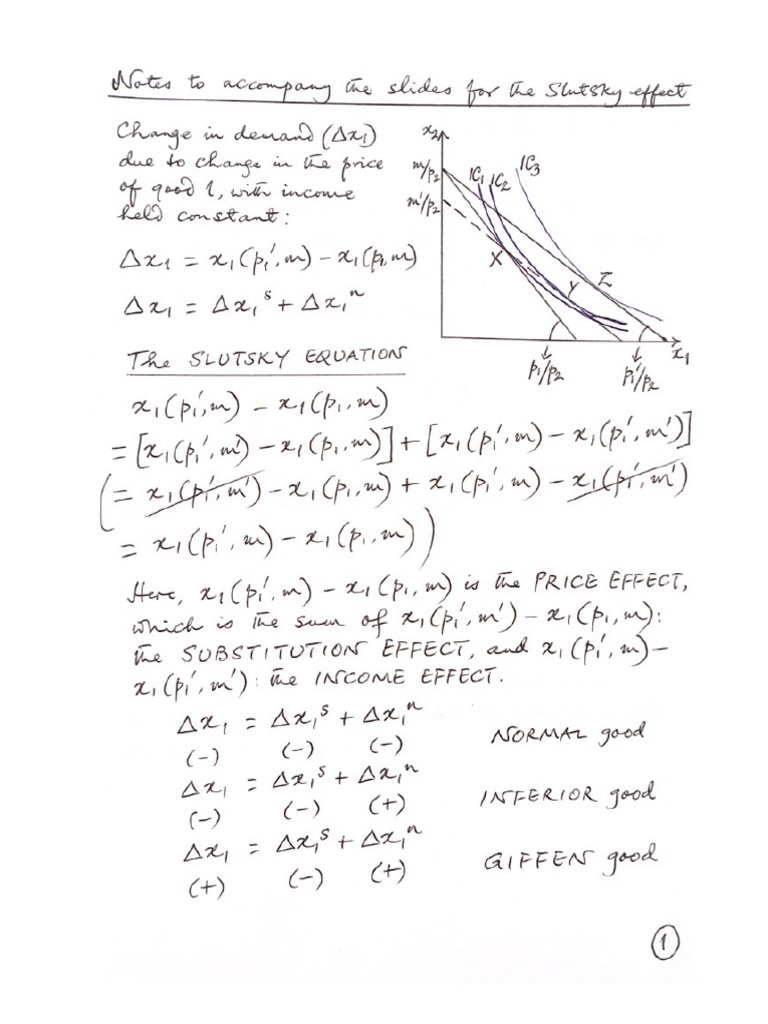 Notes to accompany the slides for the Slutsky effect
Change in demand (Δx₁)
due to change in the price
of good 1, with income
held constant:
Δx₁ = x₁(p₁', m) - x₁(p₁, m)
Δx₁ = Δx₁ˢ + Δx₁ⁿ
x₂
m/p₂
m'/p₂
IC₁
IC₂
IC₃
X
Y
Z
x₁
p₁/p₂
p₁'/p₂
The SLUTSKY EQUATION
x₁(p₁', m) - x₁(p₁, m)
= [x₁(p₁', m') - x₁(p₁, m)] + [x₁(p₁', m) - x₁(p₁', m')]
(= x₁(p₁', m') - x₁(p₁, m) + x₁(p₁', m) - x₁(p₁', m')
= x₁(p₁', m) - x₁(p₁, m))
Here, x₁(p₁', m) - x₁(p₁, m) is the PRICE EFFECT,
which is the sum of x₁(p₁', m') - x₁(p₁, m):
the SUBSTITUTION EFFECT, and x₁(p₁', m) -
x₁(p₁', m'): the INCOME EFFECT.
Δx₁ = Δx₁ˢ + Δx₁ⁿ NORMAL good
(-) (-) (-)
Δx₁ = Δx₁ˢ + Δx₁ⁿ INFERIOR good
(-) (-) (+)
Δx₁ = Δx₁ˢ + Δx₁ⁿ GIFFEN good
(+) (-) (+)
1